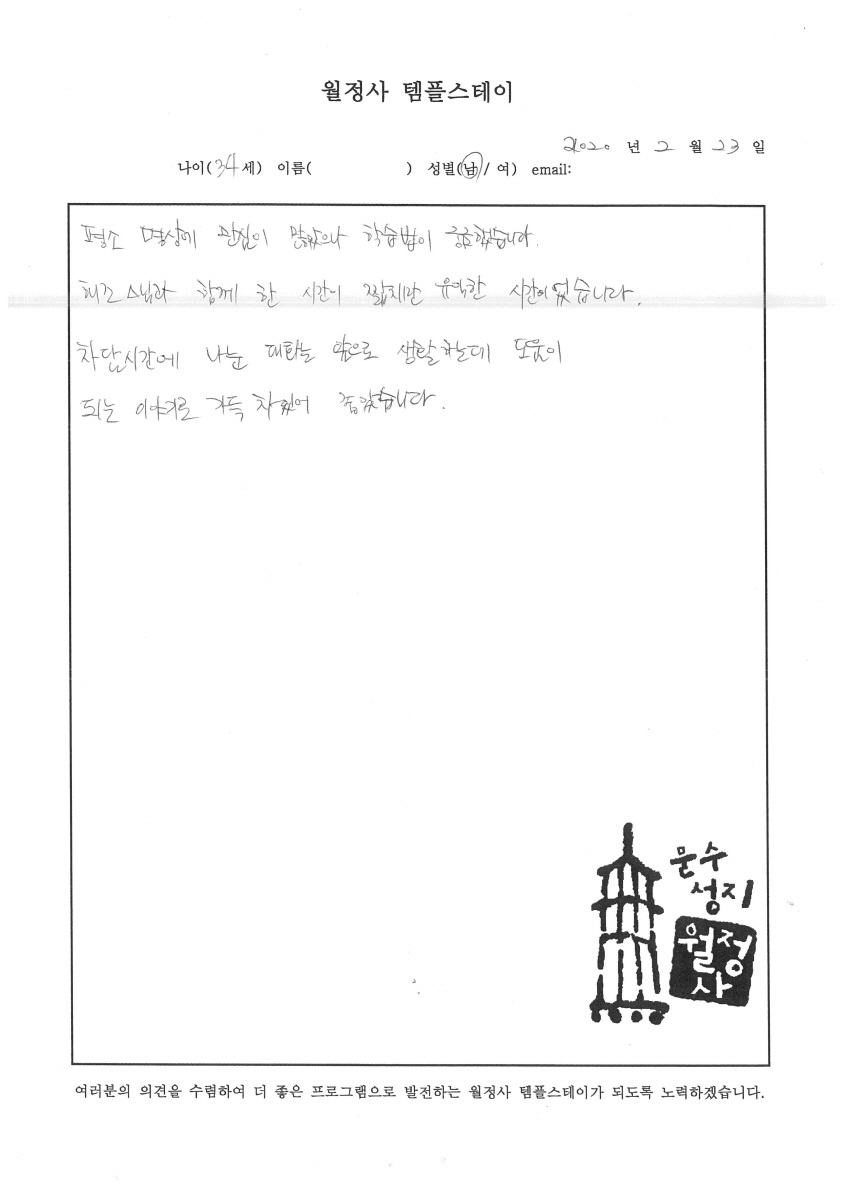 월정사 템플스테이
2020 년 2 월 23 일
나이(34세) 이름( ) 성별(남/ 여) email:
평소 명상에 관심이 많았으나 학습법이 궁금했습니다.
스님과 함께 한 시간이 짧지만 유익한 시간이었습니다.
차담시간에 나눈 대화는 앞으로 생활하는데 도움이
되는 이야기로 가득 차있어 좋았습니다.
문수
성지
월정
사
여러분의 의견을 수렴하여 더 좋은 프로그램으로 발전하는 월정사 템플스테이가 되도록 노력하겠습니다.